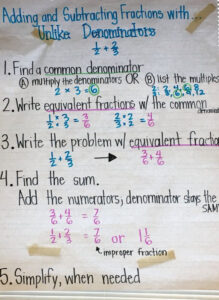 Adding and Subtracting Fractions with...
Unlike Denominators
1/2 + 2/3
1. Find a common denominator
Ⓐ multiply the denominators OR Ⓑ list the multiples
2 × 3 = 6
2. Write equivalent fractions w/ the common denominator
1/2 × 3/3 = 3/6 2/3 × 2/2 = 4/6
3. Write the problem w/ equivalent fractions
1/2 + 2/3 → 3/6 + 4/6
4. Find the sum.
Add the numerators; denominator stays the SAME
3/6 + 4/6 = 7/6
1/2 + 2/3 = 7/6 or 1 1/6
improper fraction
5. Simplify, when needed